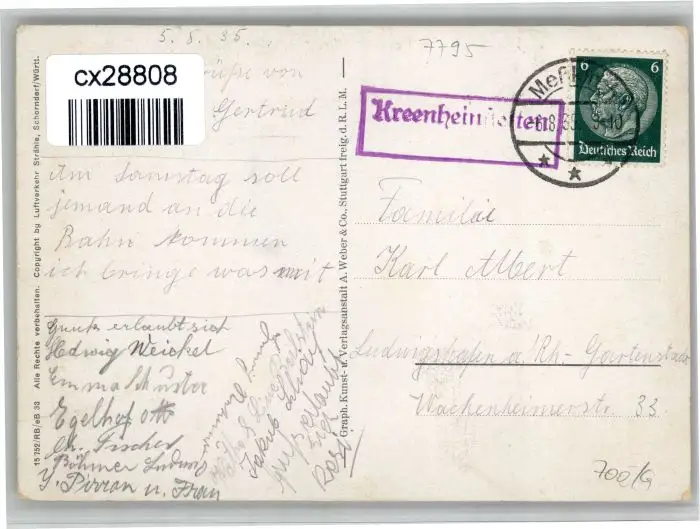 5. 8. 35.
7795
cx28808
Grüße von
Gertrud
Am Samstag soll
jemand an die
Bahn kommen
ich bringe was mit
erlaubt sich
Hedwig Weickel
Emma Schuster
Egelhof Otto
Ch. Fischer
Böhmer Ludwig
J. Pirron u. Frau
Jakob
Gruß erlaubt
sich
Rosi
15 752/RB/eB 33 Alle Rechte vorbehalten. Copyright by Luftverkehr Strähle, Schorndorf/Württ.
Graph. Kunst- u. Verlagsanstalt A. Weber & Co., Stuttgart freig. d. R. L. M.
Kreenheinstetten
6 6
Deutsches Reich
Familie
Karl Albert
Ludwigshafen a/Rh- Gartenstadt
Wachenheimerstr. 33.
700/G